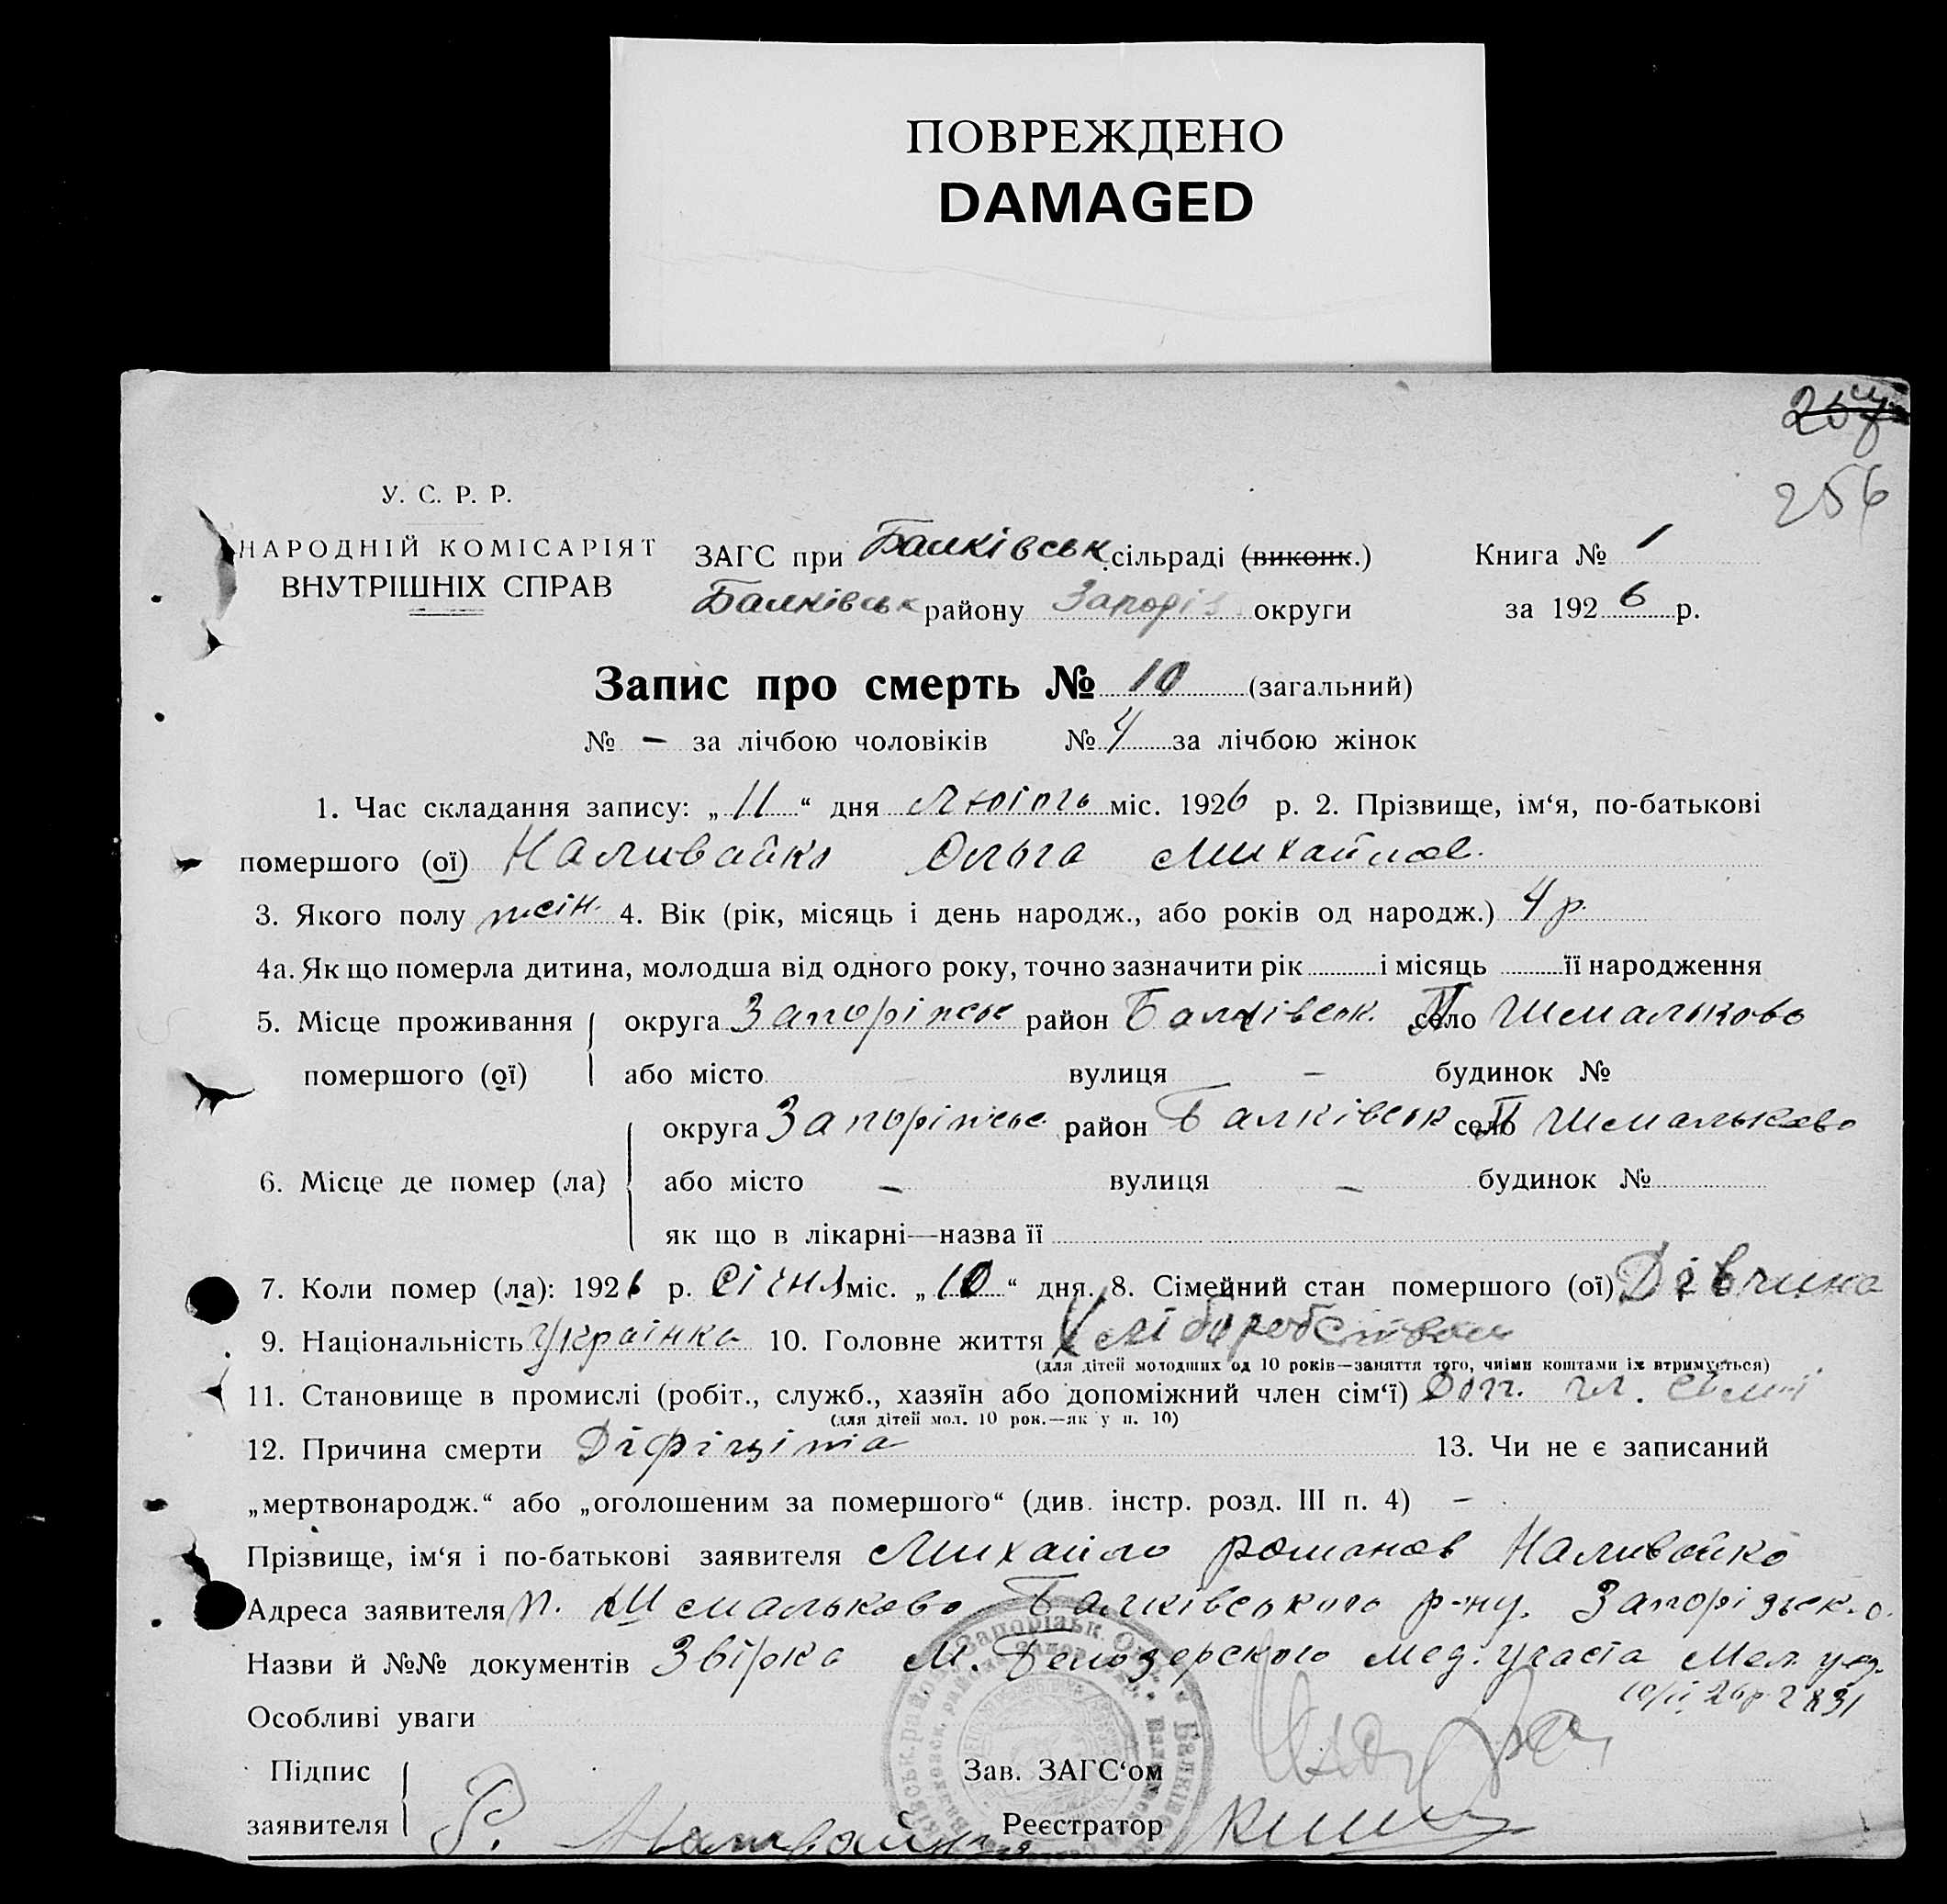 ПОВРЕЖДЕНО
DAMAGED
256
У. С. Р. Р.
НАРОДНІЙ КОМІСАРІЯТ
ВНУТРІШНІХ СПРАВ
ЗАГС при Балківськ. сільраді (виконк.) Книга № 1
Балківськ району Запоріз округи за 1926 р.
Запис про смерть № 10 (загальний)
№ – за лічбою чоловіків № 4 за лічбою жінок
1. Час складання запису: „ 11 “ дня міс. 1926 р. 2. Прізвище, ім‘я, по-батькові
помершого (ої) Наливайко Ольга Михайлов.
3. Якого полу жін. 4. Вік (рік, місяць і день народж., або років од народж.) 4 р.
4а. Як що померла дитина, молодша від одного року, точно зазначити рік і місяць її народження
5. Місце проживання округа Запоріжськ район Балківськ. село Шмальково
помершого (ої) або місто вулиця – будинок №
округа Запоріжськ район Балківськ село Шмальково
6. Місце де помер (ла) або місто – вулиця – будинок №
як що в лікарні—назва її
7. Коли помер (ла): 1926 р. Січня міс. „ 10 “ дня. 8. Сімейний стан помершого (ої) Дівчина
9. Національність Українка 10. Головне життя Хліборобством
(для дітей молодших од 10 років—заняття того, чиїми коштами їх втримується)
11. Становище в промислі (робіт., служб., хазяїн або допоміжний член сім‘ї) Доп. чл. сімї
(для дітей мол. 10 рок.—як у п. 10)
12. Причина смерти 13. Чи не є записаний
„мертвонародж.“ або „оголошеним за помершого“ (див. інстр. розд. III п. 4) –
Прізвище, ім‘я і по-батькові заявителя Михайло Романов Наливайко
Адреса заявителя п. Шмальково Балківського р-ну. Запорізьск. о.
Назви й №№ документів М. Белозерского мед. участа
Особливі уваги
Підпис Зав. ЗАГС‘ом
заявителя Реєстратор